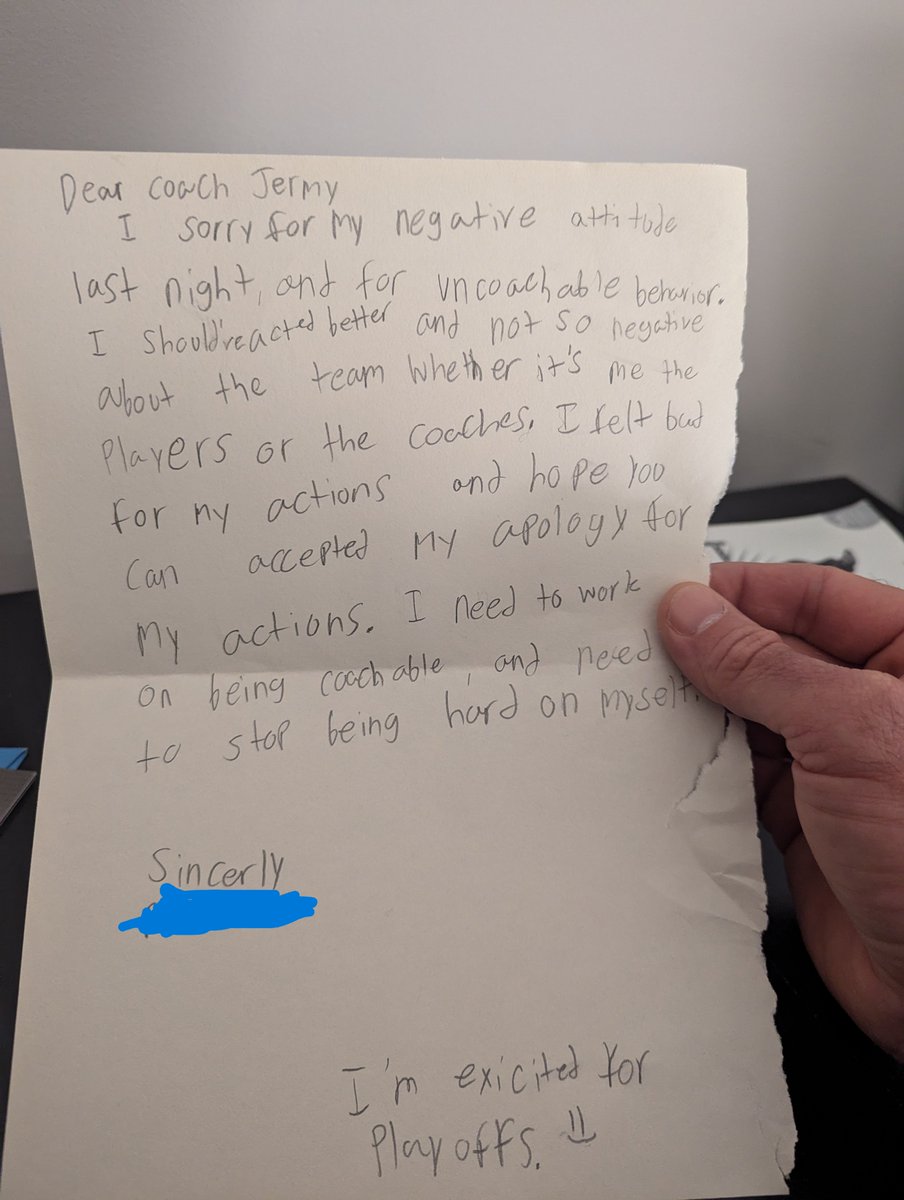 Dear coach Jermy
I sorry for my negative attitude
last night, and for uncoachable behavior.
I should've acted better and not so negative
about the team whether it's me the
Players or the coaches. I felt bad
for my actions and hope you
can accepted my apology for
my actions. I need to work
on being coachable, and need
to stop being hard on myself.
Sincerly
I'm exicited for
Playoffs.